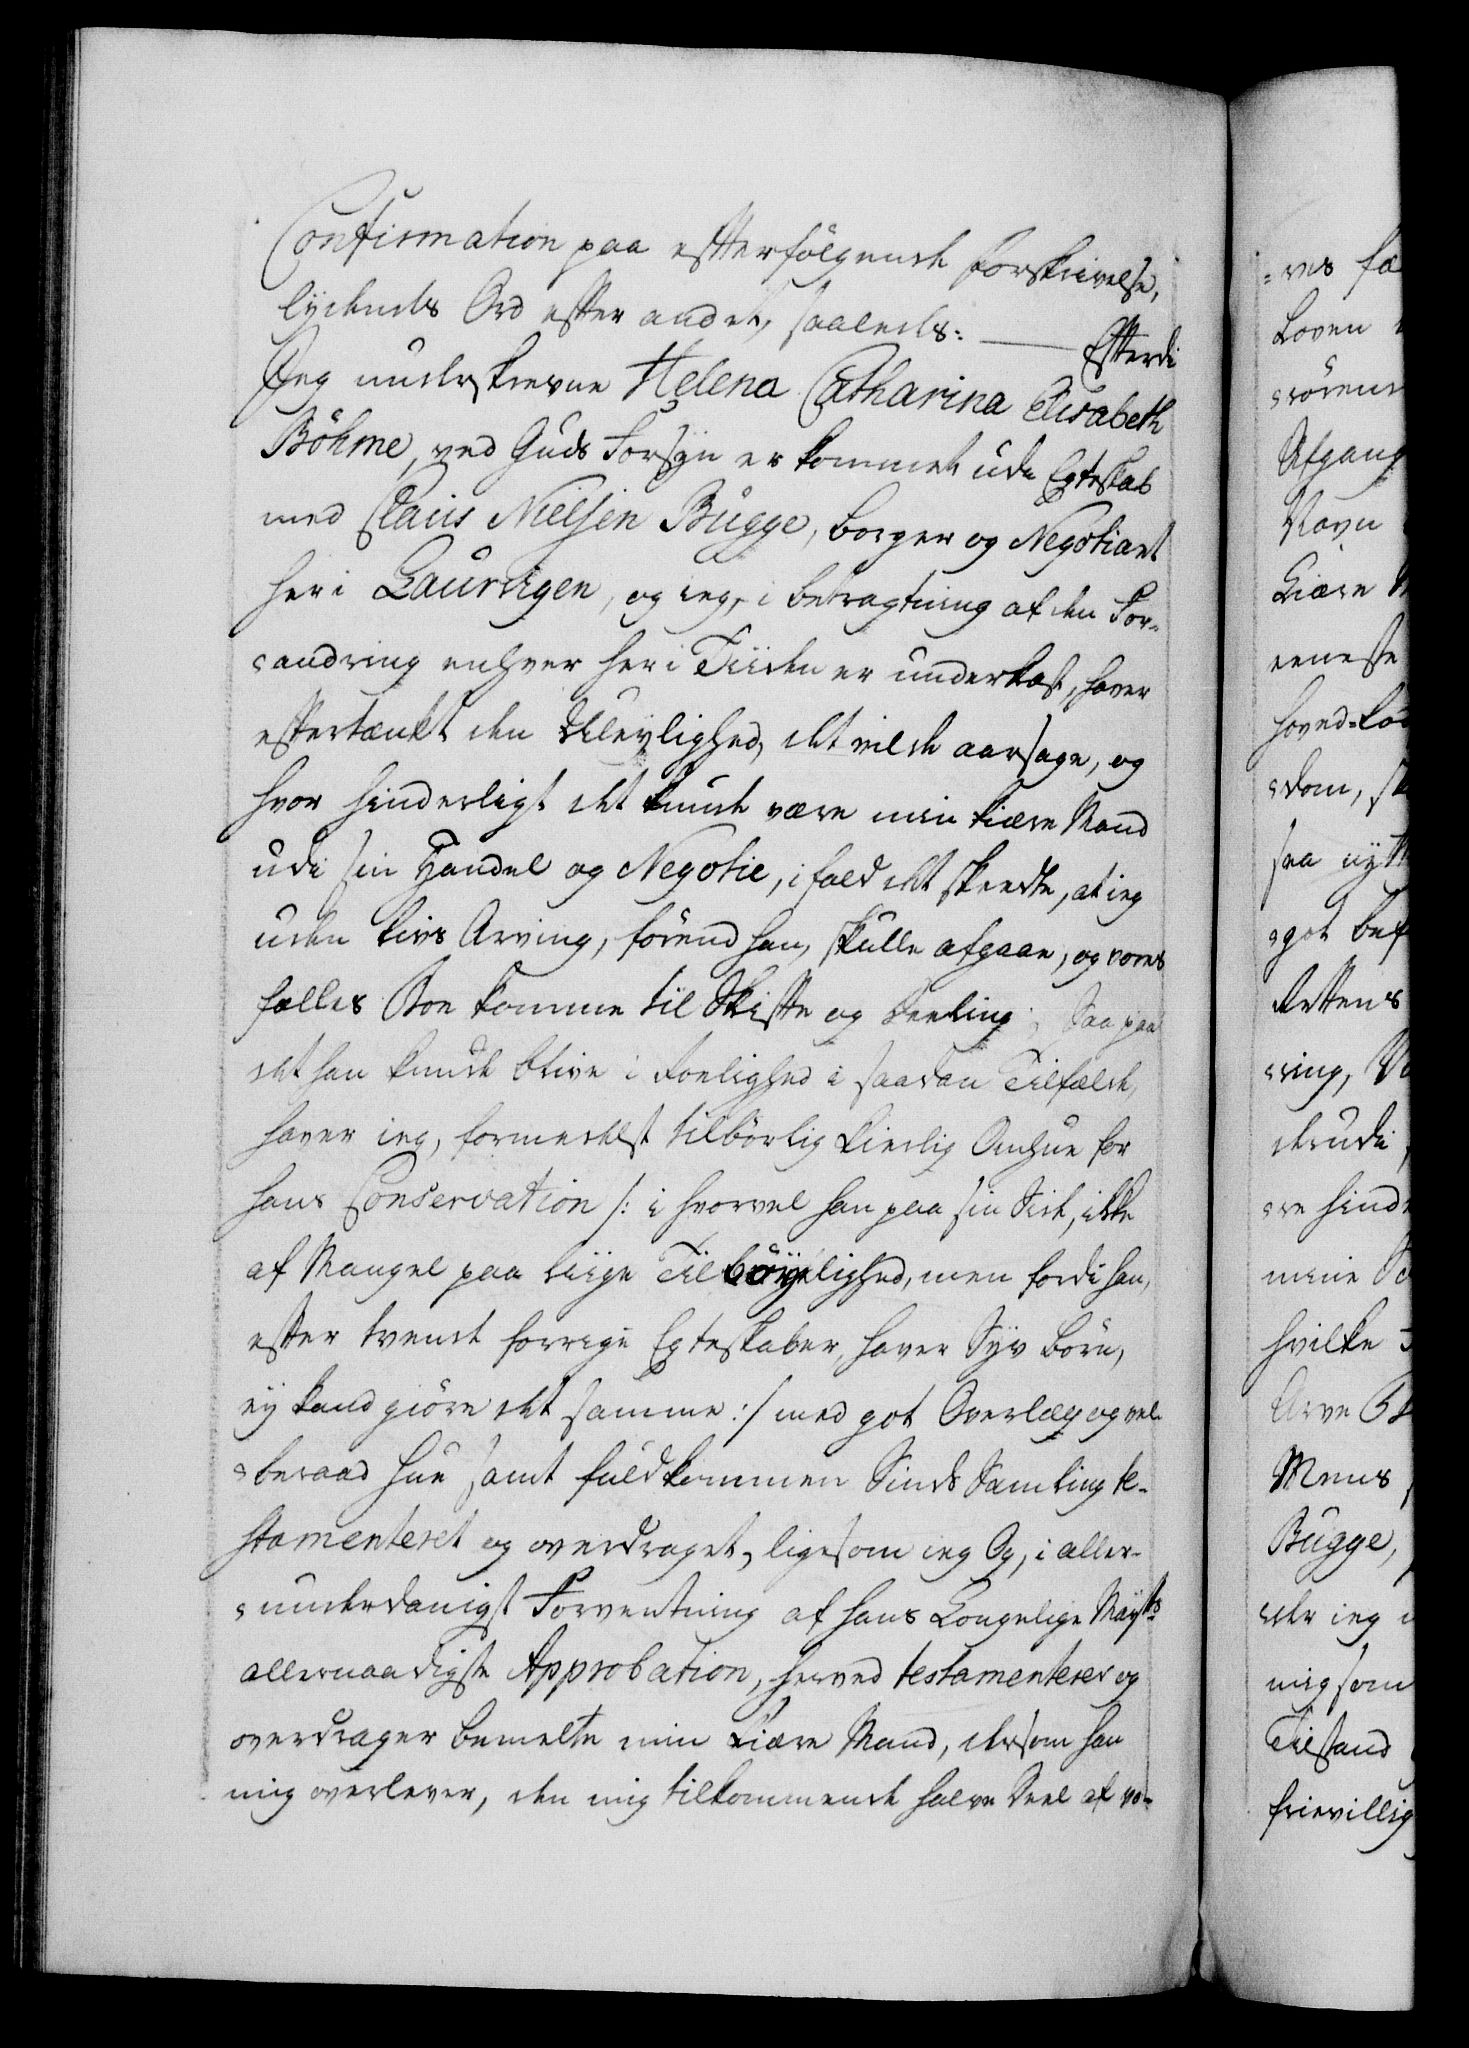 Confirmation paa efterfölgende Forskrivelse,
lydende Ord efter andet, saaledes: — Efterdi
Jeg underskrevne Helena Catharina Elisabeth
Böhme, ved Guds Forsyn er kommet udi Egteskab
med Claus Nielsen Bugge, borger og Negotiant
her i Laurvigen, og ieg, i betragtning af den For-
=andring enhver her i Tiiden er underkast, haver
eftertænkt den Uleylighed, det vilde aarsage, og
hvor hinderligt det kunde være min kiære Mand
udi sin Handel og Negotie, i fald det skeedte, at ieg
uden Livs Arving, förend han, skulle afgaae, og vores
fælles Boe komme til Skifte og Deeling; Saa paa
det han kunde blive i Roelighed i saadan Tilfælde,
haver ieg, formedelst tilbörlig kierlig Omhue for
hans Conservation /: i hvorvel han paa sin Side, ikke
af Mangel paa liige Tilböyelighed, men fordi han,
efter tvende forrige Egteskaber, haver Syv börn,
ey kand giöre det samme :/ med got Overlæg og vel-
=beraad Hue samt fuldkommen Sinds Samling te-
stamenteret og overdraget, ligesom ieg Og, i aller-
=underdanigst Forventning af hans Kongelige Mayts
allernaadigste Approbation, herved testamenterer og
overdrager bemelte min Kiære Mand, dersom han
mig overlever, den mig tilkommende halve Deel af vo-
=res fæ
Loven
=rörend
Afgang
Navn
Kiære M
eeneste
hoved=Lo
=dom, s
saa nytt
=got bef
Rettens
=ring,
derudi,
=re hind
mine
hvilke
Arve
Mens
Bugge,
=der ieg
mig som
Tilstand
frievillig